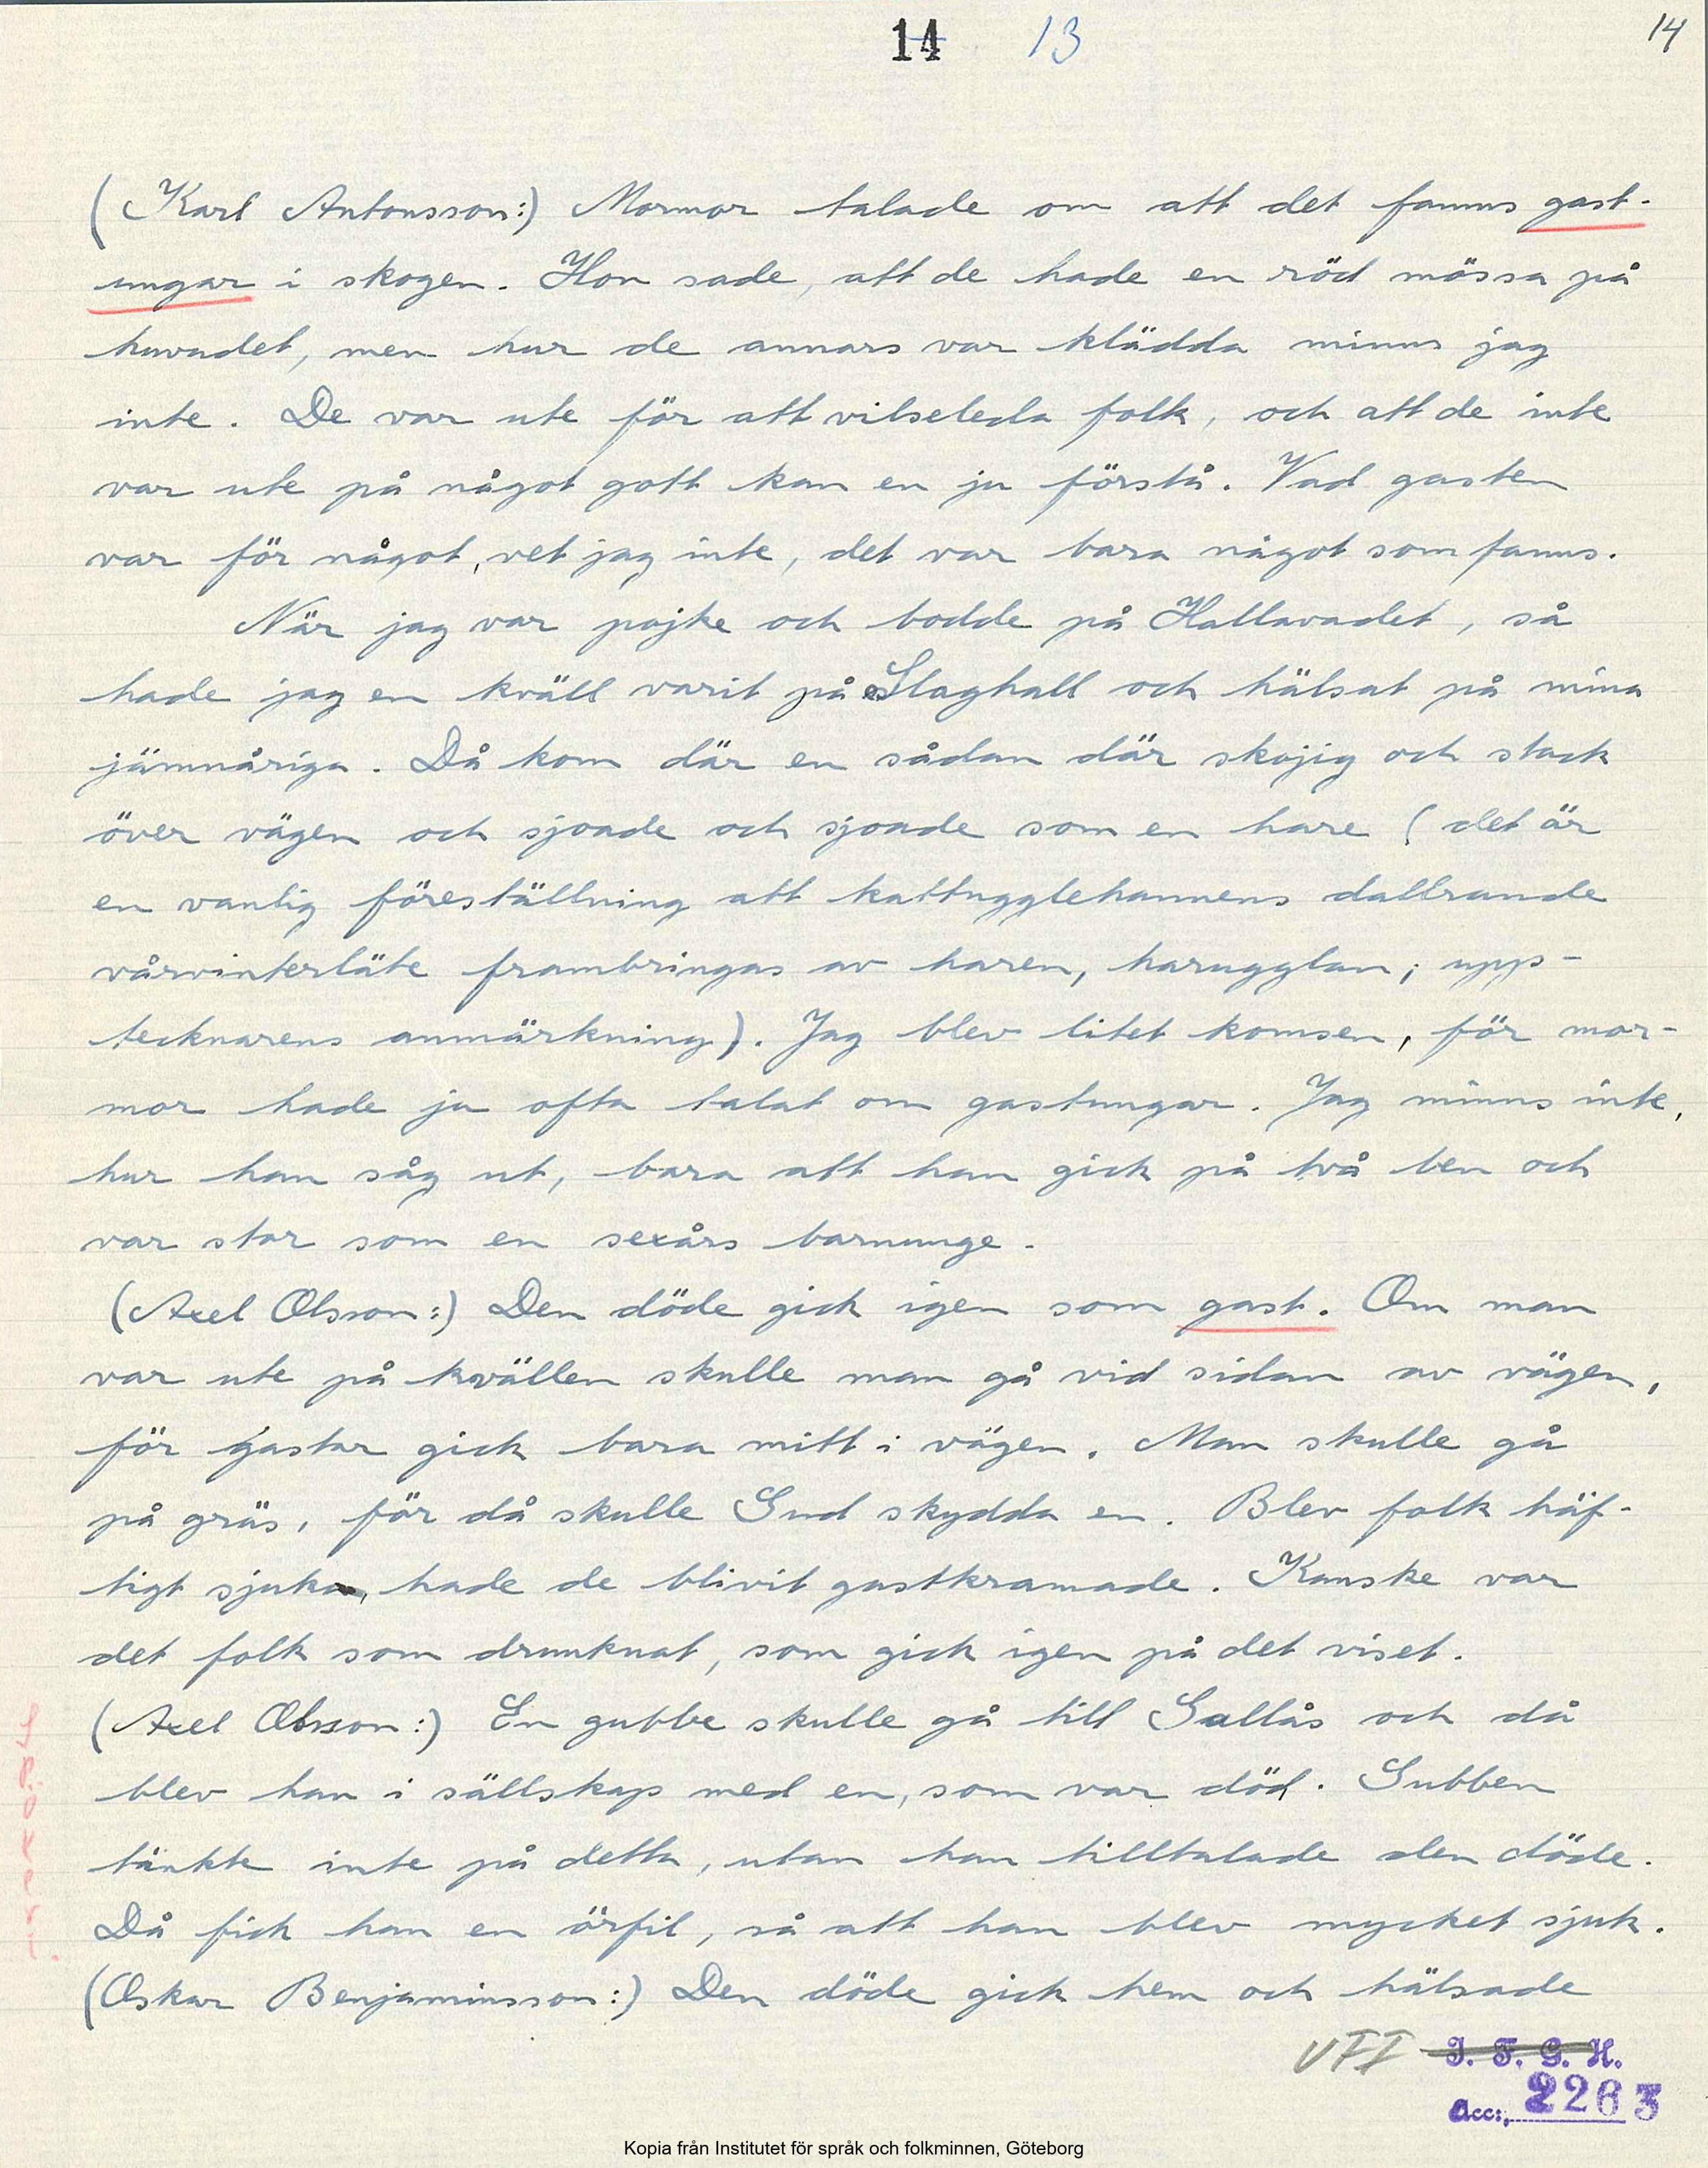 14 13 14
(Karl Antonsson:) Mormor talade om att det fanns gast-
ungar i skogen. Hon sade, att de hade en röd mössa på
huvudet, men hur de annars var klädda minns jag
inte. De var ute för att vilseleda folk, och att de inte
var ute på något gott kan en ju förstå. Vad gasten
var för något, vet jag inte, det var bara något som fanns.
När jag var pojke och bodde på Hallavadet, så
hade jag en kväll varit på Slaghall och hälsat på mina
jämnåriga. Då kom där en sådan där skojig och stack
över vägen och sjoade och sjoade som en hare (det är
en vanlig föreställning att kattugglehannens dallrande
vårvinterläte frambringas av haren, harugglan; upp-
tecknarens anmärkning). Jag blev litet komsen, för mor-
mor hade ju ofta talat om gastungar. Jag minns inte,
hur han såg ut, bara att han gick på två ben och
var stor som en sexårs barnunge.
(Axel Olsson:) Den döde gick igen som gast. Om man
var ute på kvällen skulle man gå vid sidan av vägen,
för gastar gick bara mitt i vägen. Man skulle gå
på gräs, för då skulle Gud skydda en. Blev folk häf-
tigt sjuka, hade de blivit gastkramade. Kanske var
det folk som drunknat, som gick igen på det viset.
(Axel Olsson:) En gubbe skulle gå till Gallås och då
blev han i sällskap med en, som var död. Gubben
tänkte inte på detta, utan han tilltalade den döde.
Då fick han en örfil, så att han blev mycket sjuk.
(Oskar Benjaminsson:) Den döde gick hem och hälsade
VFI I. F. G. H.
Acc:. 2263
Kopia från Institutet för språk och folkminnen, Göteborg